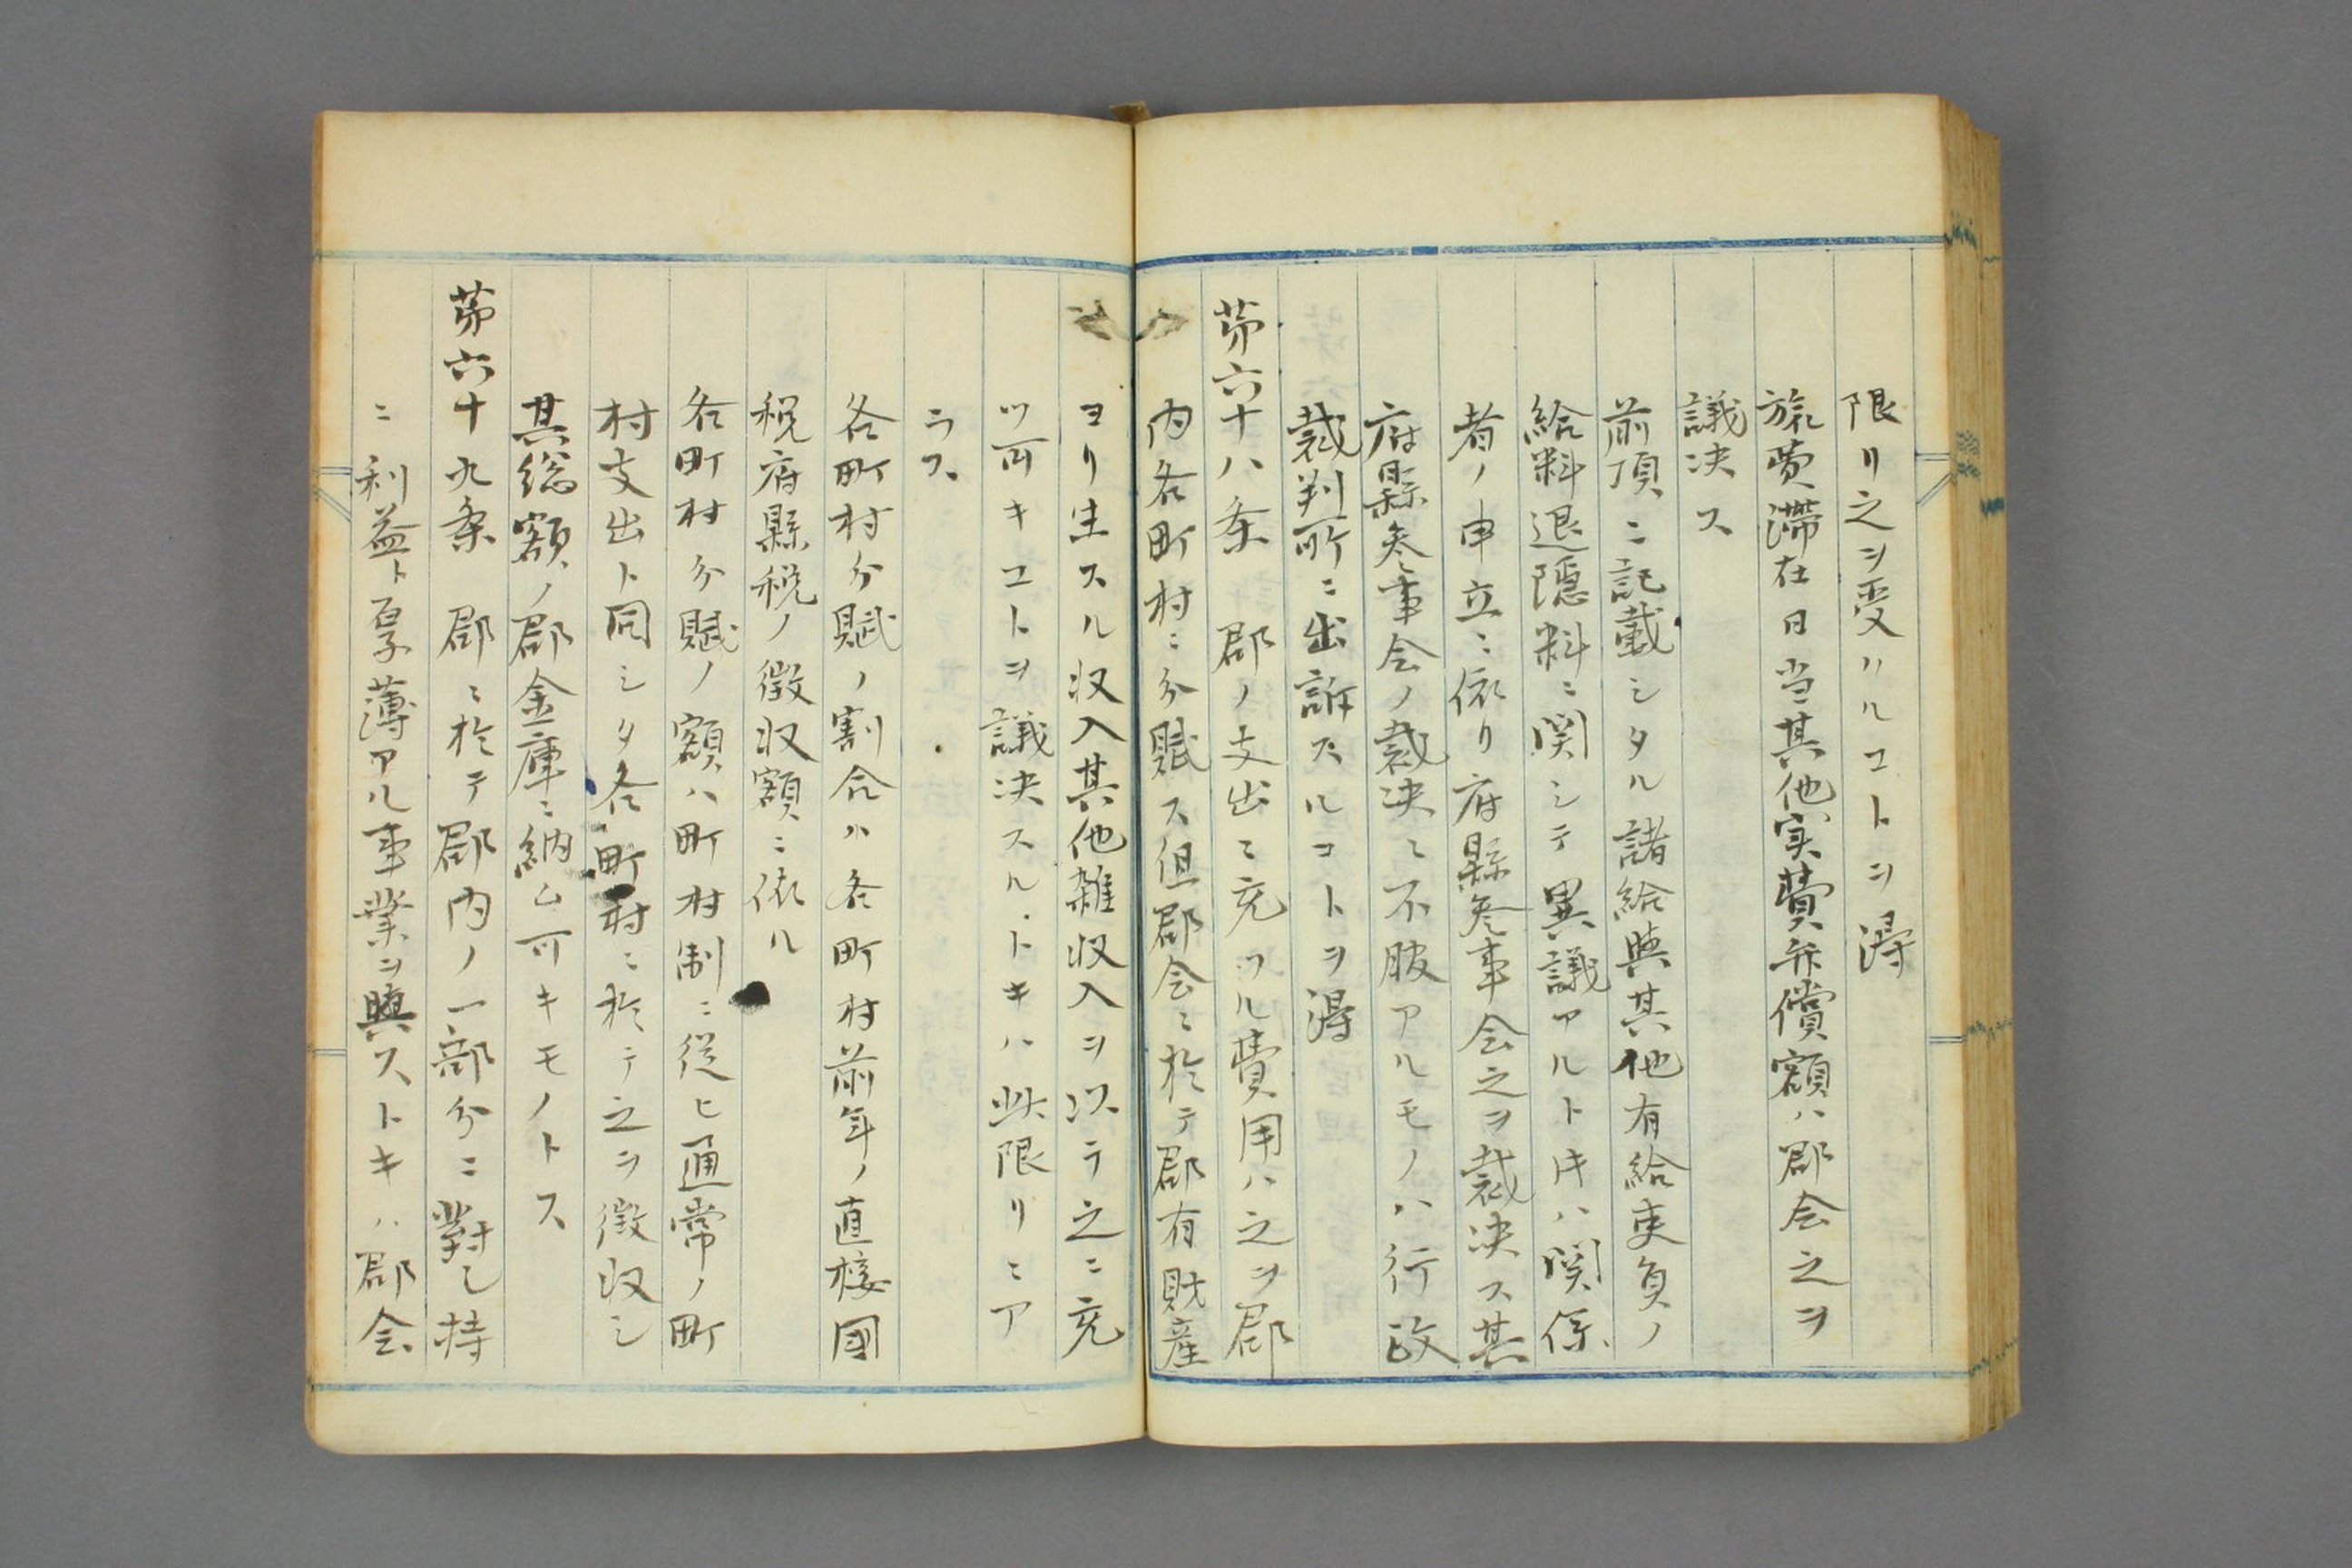 限リ之ヲ受ハルコトヲ得
旅費滞在日当其他実費弁償額ハ郡会之ヲ
議决ス
前項ニ記載シタル諸給與其他有給吏員ノ
給料退隠料ニ関シテ異議アルトキハ関係
者ノ申立ニ依リ府縣参事会之ヲ裁决ス其
府縣参事会ノ裁决ニ不服アルモノハ行政
裁判所ニ出訴スルコトヲ得
第六十八条　郡ノ支出ニ充ツル費用ハ之ヲ郡
内各町村ニ分賦ス但郡会ニ於テ郡有財産
ヨリ生スル収入其他雑収入ヲ以テ之ニ充
ツ可キコトヲ議决スルトキハ此限リニア
ラス
各町村分賦ノ割合ハ各町村前年ノ直接國
税府縣税ノ徴収額ニ依ル
各町村分賦ノ額ハ町村制ニ従ヒ通常ノ町
村支出ト同シク各町村ニ於テ之ヲ徴収シ
其総額ノ郡金庫ニ納ム可キモノトス
第六十九条　郡ニ於テ郡内ノ一部分ニ對し特
ニ利益ト厚薄アル事業ヲ興ストキハ郡会